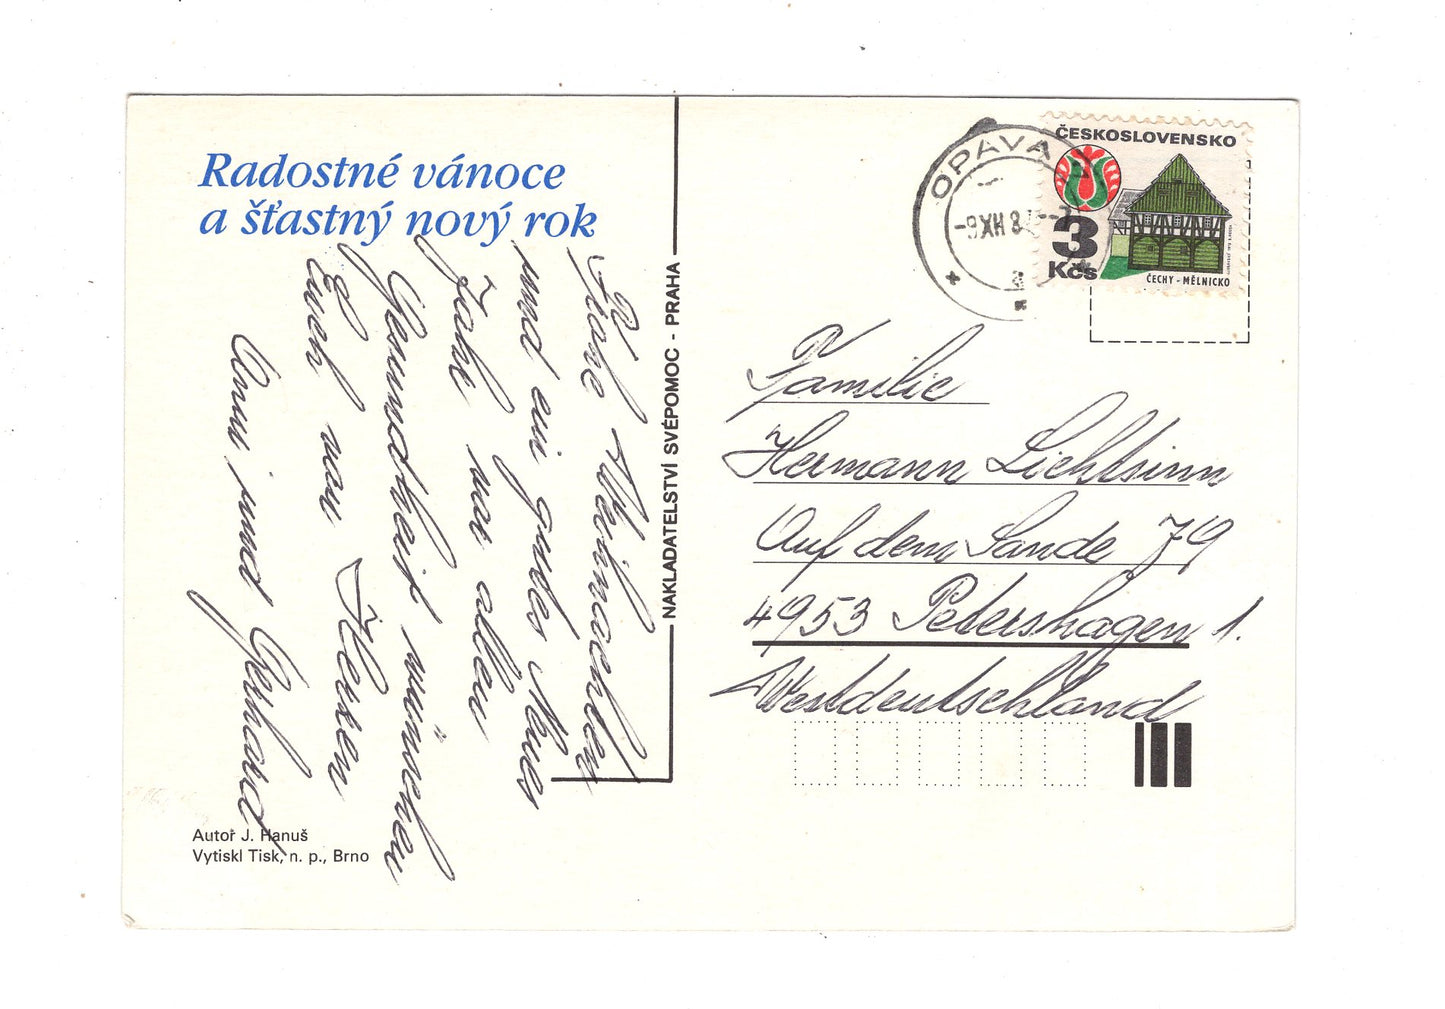 Radostné vánoce
a šťastný nový rok
Schöne Weihnachten
und ein gutes Neues
Jahr vor allem
Gesundheit wünschen
Euch von Herzen
Anni und Gerhard
Autoř J. Hanuš
Vytiskl Tisk, n. p., Brno
NAKLADATELSTVÍ SVÉPOMOC - PRAHA
OPAVA 1
-9.XII.8
ČESKOSLOVENSKO
3
Kčs
ČECHY - MĚLNICKO
Familie
Hermann Lichtsinn
Auf dem Sande 79
4953 Petershagen 1.
Westdeutschland